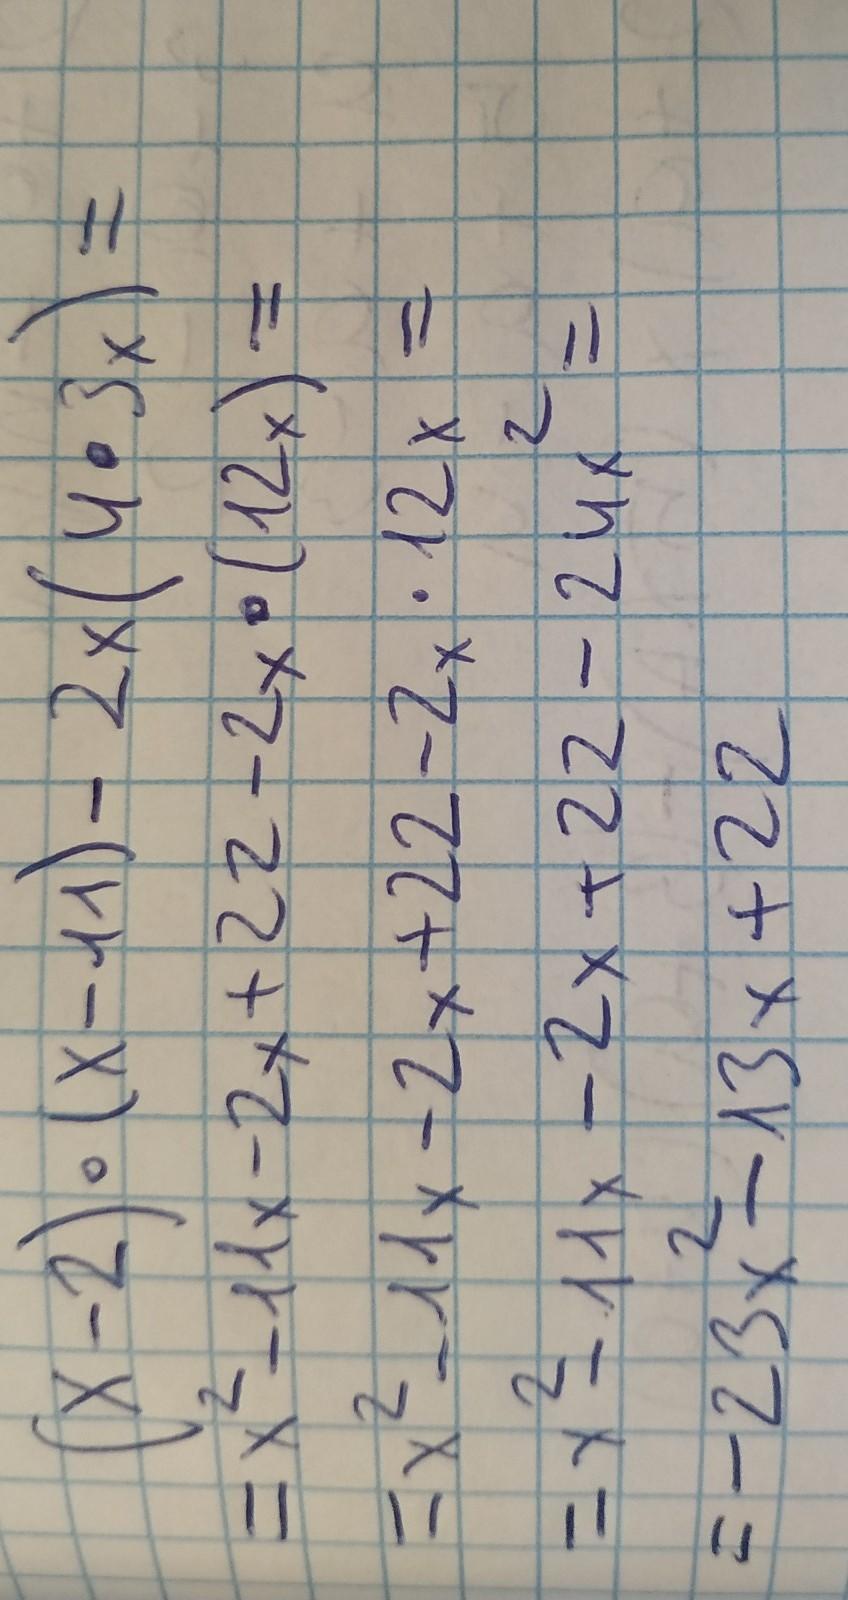 (x-2)•(x-11)-2x(4•3x)=
=x²-11x-2x+22-2x•(12x)=
=x²-11x-2x+22-2x·12x=
=x²-11x-2x+22-24x²=
=-23x²-13x+22